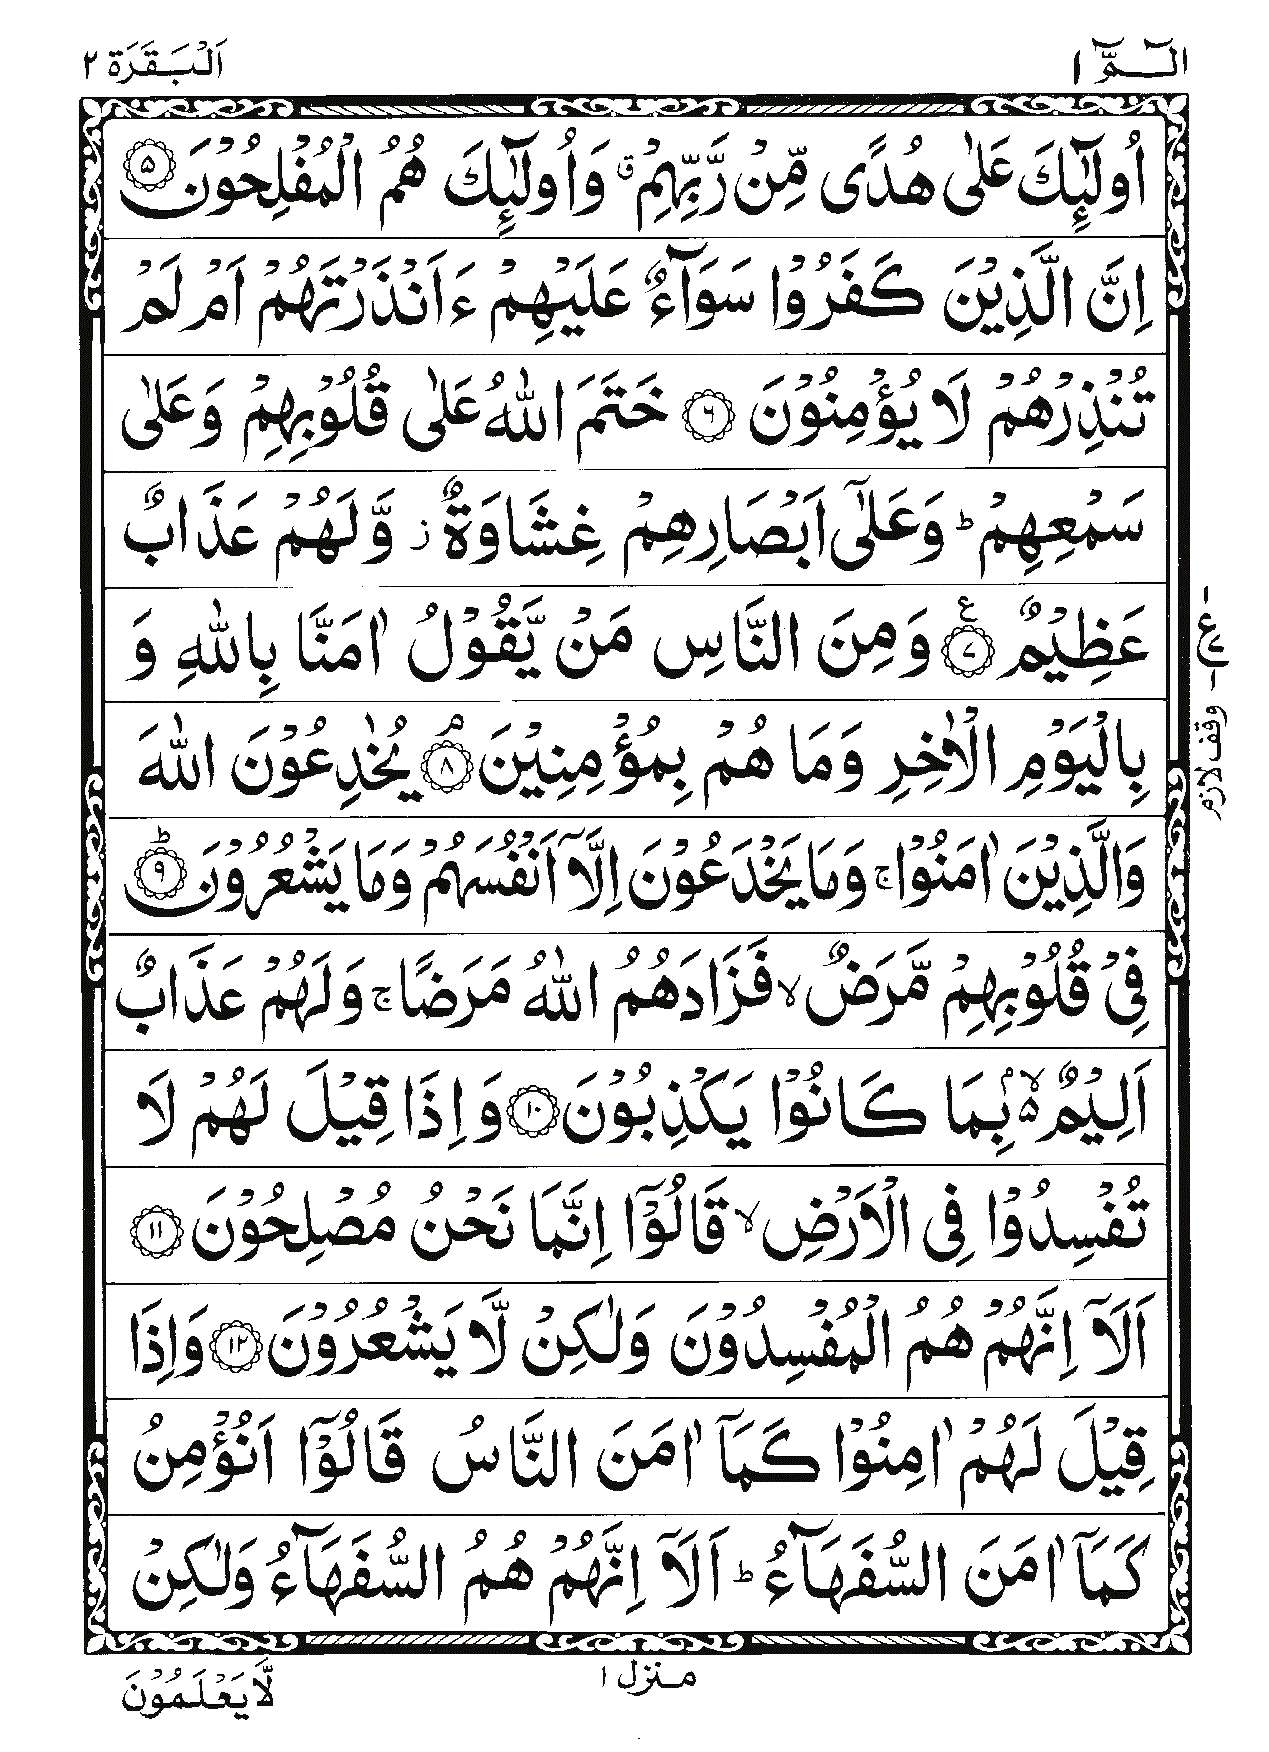 الٓـمّٓ ١
اَلْبَقَرَة ٢
اُولٰٓئِكَ عَلٰى هُدًى مِّنْ رَّبِّهِمْ ۗ وَاُولٰٓئِكَ هُمُ الْمُفْلِحُوْنَ ۵
اِنَّ الَّذِيْنَ كَفَرُوْا سَوَآءٌ عَلَيْهِمْ ءَاَنْذَرْتَهُمْ اَمْ لَمْ
تُنْذِرْهُمْ لَا يُؤْمِنُوْنَ ۶ خَتَمَ اللّٰهُ عَلٰى قُلُوْبِهِمْ وَعَلٰى
سَمْعِهِمْ ؕ وَعَلٰٓى اَبْصَارِهِمْ غِشَاوَةٌ ز وَّلَهُمْ عَذَابٌ
عَظِيْمٌ ۷ ع وَمِنَ النَّاسِ مَنْ يَّقُوْلُ اٰمَنَّا بِاللّٰهِ وَ
بِالْيَوْمِ الْاٰخِرِ وَمَا هُمْ بِمُؤْمِنِيْنَ ۘ ۸ يُخٰدِعُوْنَ اللّٰهَ
وَالَّذِيْنَ اٰمَنُوْا ۚ وَمَا يَخْدَعُوْنَ اِلَّآ اَنْفُسَهُمْ وَمَا يَشْعُرُوْنَ ؕ ۹
فِيْ قُلُوْبِهِمْ مَّرَضٌ ۙ فَزَادَهُمُ اللّٰهُ مَرَضًا ۚ وَلَهُمْ عَذَابٌ
اَلِيْمٌ ۵ۙ بِمَا كَانُوْا يَكْذِبُوْنَ ۱۰ وَاِذَا قِيْلَ لَهُمْ لَا
تُفْسِدُوْا فِى الْاَرْضِ ۙ قَالُوْٓا اِنَّمَا نَحْنُ مُصْلِحُوْنَ ۱۱
اَلَآ اِنَّهُمْ هُمُ الْمُفْسِدُوْنَ وَلٰكِنْ لَّا يَشْعُرُوْنَ ۱۲ وَاِذَا
قِيْلَ لَهُمْ اٰمِنُوْا كَمَآ اٰمَنَ النَّاسُ قَالُوْٓا اَنُؤْمِنُ
كَمَآ اٰمَنَ السُّفَهَآءُ ؕ اَلَآ اِنَّهُمْ هُمُ السُّفَهَآءُ وَلٰكِنْ
ع
وقف لازم
منزل ۱
لَّا يَعْلَمُوْنَ